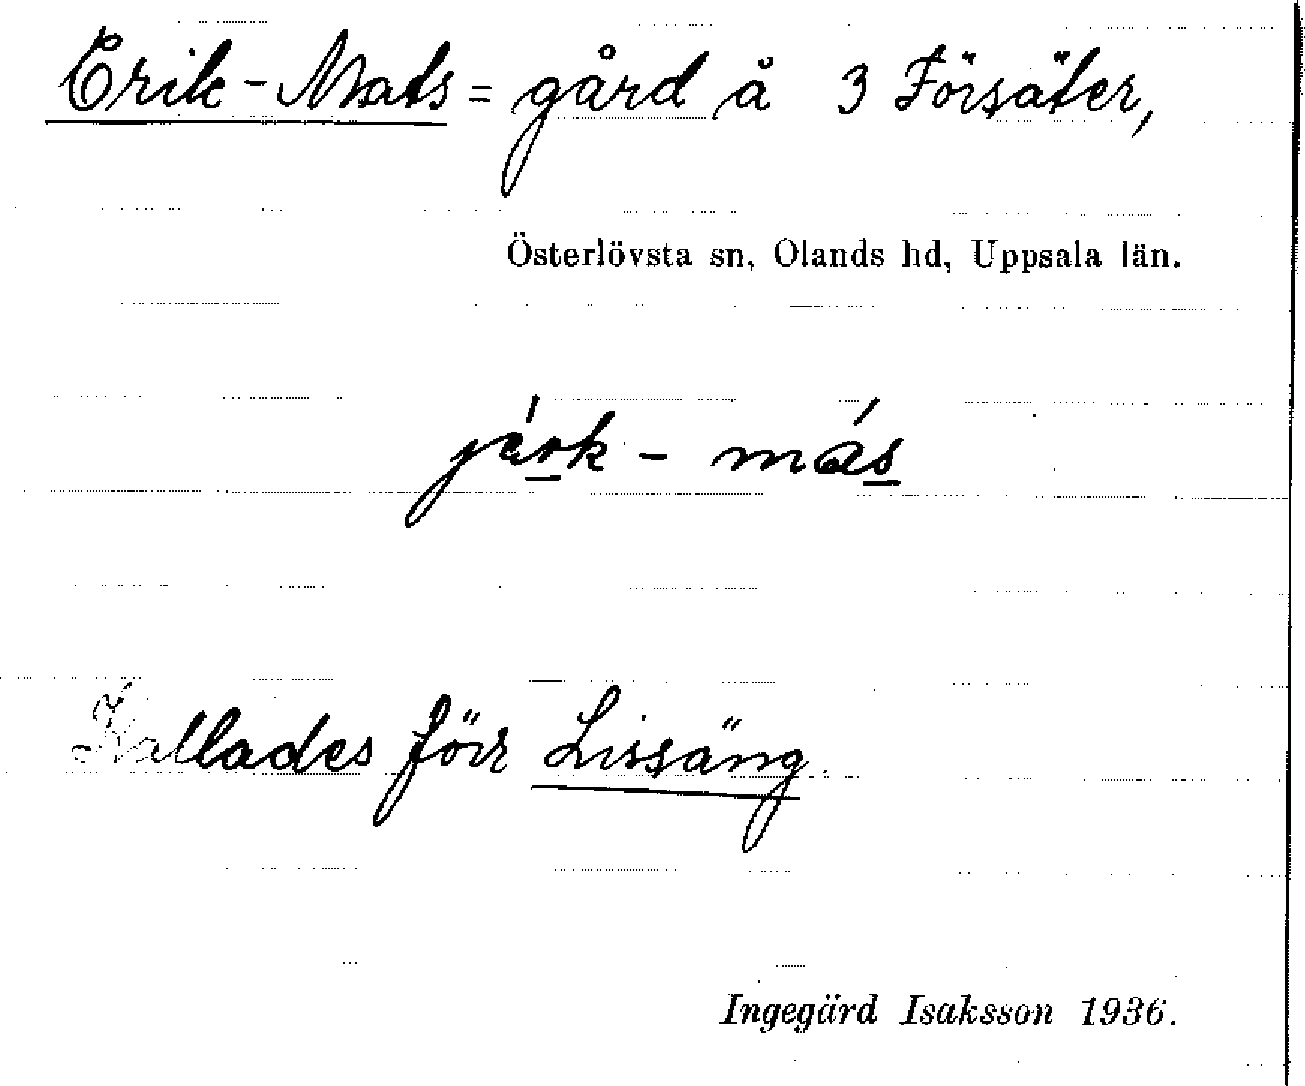 Erik-Mats = gård å 3 Försäter,
Österlövsta sn, Olands hd, Uppsala län.
jérk - más
Kallades förr Lissäng.
Ingegärd Isaksson 1936.